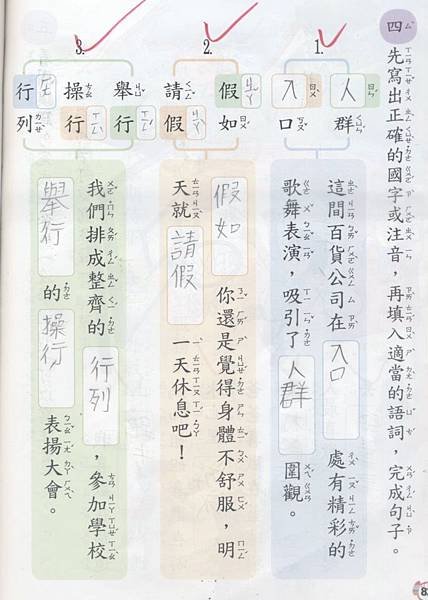 四 先寫出正確的國字或注音，再填入適當的語詞，完成句子。
1.
人群
入口
這間百貨公司在入口處有精彩的
歌舞表演，吸引了人群圍觀。
2.
假如
請假
假如你還是覺得身體不舒服，明
天就請假一天休息吧！
3.
舉行
操行
行列
我們排成整齊的行列，參加學校
舉行的操行表揚大會。